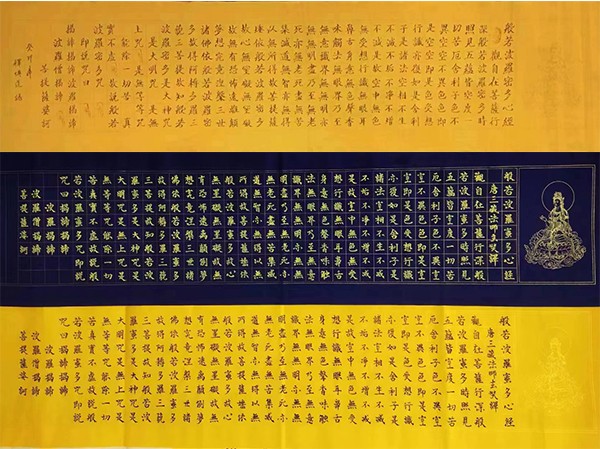 般若波羅密多心經
觀自在菩薩行
深般若波羅密多時
照見五蘊皆空度一
切苦厄舍利子色不
異空空不異色色即
是空空即是色受想
行識亦復如是舍利
子是諸法空相不生
不滅不垢不淨不增
不減是故空中無色
無受想行識無眼耳
鼻舌身意無色聲香
味觸法無眼界乃至
無意識界無無明亦
無無明盡乃至無老
死亦無老死盡無苦
集滅道無智亦無得
以無所得故菩提薩
埵依般若波羅密多
故心無罣礙無罣礙
故無有恐怖遠離顛倒
夢想究竟涅槃三世
諸佛依般若波羅密
多故得阿耨多羅三
藐三菩提故知般若
波羅密多是大神
咒是大明咒是無
上咒是無等等咒
能除一切苦真
實不虛故說般若
波羅密多咒
即說咒曰
揭諦揭諦波羅揭諦
波羅僧揭諦
菩提薩婆訶
癸卯年
般若波羅蜜多心經
唐三藏法師玄奘譯
觀自在菩薩行深般
若波羅蜜多時照見
五蘊皆空度一切苦
厄舍利子色不異空
空不異色色即是空
空即是色受想行識
亦復如是舍利子是
諸法空相不生不滅
不垢不淨不增不減
是故空中無色無受
想行識無眼耳鼻舌
身意無色聲香味觸
法無眼界乃至無意
識界無無明亦無無
明盡乃至無老死亦
無老死盡無苦集滅
道無智亦無得以無
所得故菩提薩埵依
般若波羅蜜多故心
無罣礙無罣礙故無
有恐怖遠離顛倒夢
想究竟涅槃三世諸
佛依般若波羅蜜多
故得阿耨多羅三藐
三菩提故知般若波
羅蜜多是大神咒是
大明咒是無上咒是
無等等咒能除一切
苦真實不虛故說般
若波羅蜜多咒即說
咒曰揭諦揭諦
波羅揭諦
波羅僧揭諦
菩提薩婆訶
般若波羅蜜多心經
唐三藏法師玄奘譯
觀自在菩薩行深般
若波羅蜜多時照見
五蘊皆空度一切苦
厄舍利子色不異空
空不異色色即是空
空即是色受想行識
亦復如是舍利子是
諸法空相不生不滅
不垢不淨不增不減
是故空中無色無受
想行識無眼耳鼻舌
身意無色聲香味觸
法無眼界乃至無意
識界無無明亦無無
明盡乃至無老死亦
無老死盡無苦集滅
道無智亦無得以無
所得故菩提薩埵依
般若波羅蜜多故心
無罣礙無罣礙故無
有恐怖遠離顛倒夢
想究竟涅槃三世諸
佛依般若波羅蜜多
故得阿耨多羅三藐
三菩提故知般若波
羅蜜多是大神咒是
大明咒是無上咒是
無等等咒能除一切
苦真實不虛故說般
若波羅蜜多咒即說
咒曰揭諦揭諦
波羅揭諦
波羅僧揭諦
菩提薩婆訶